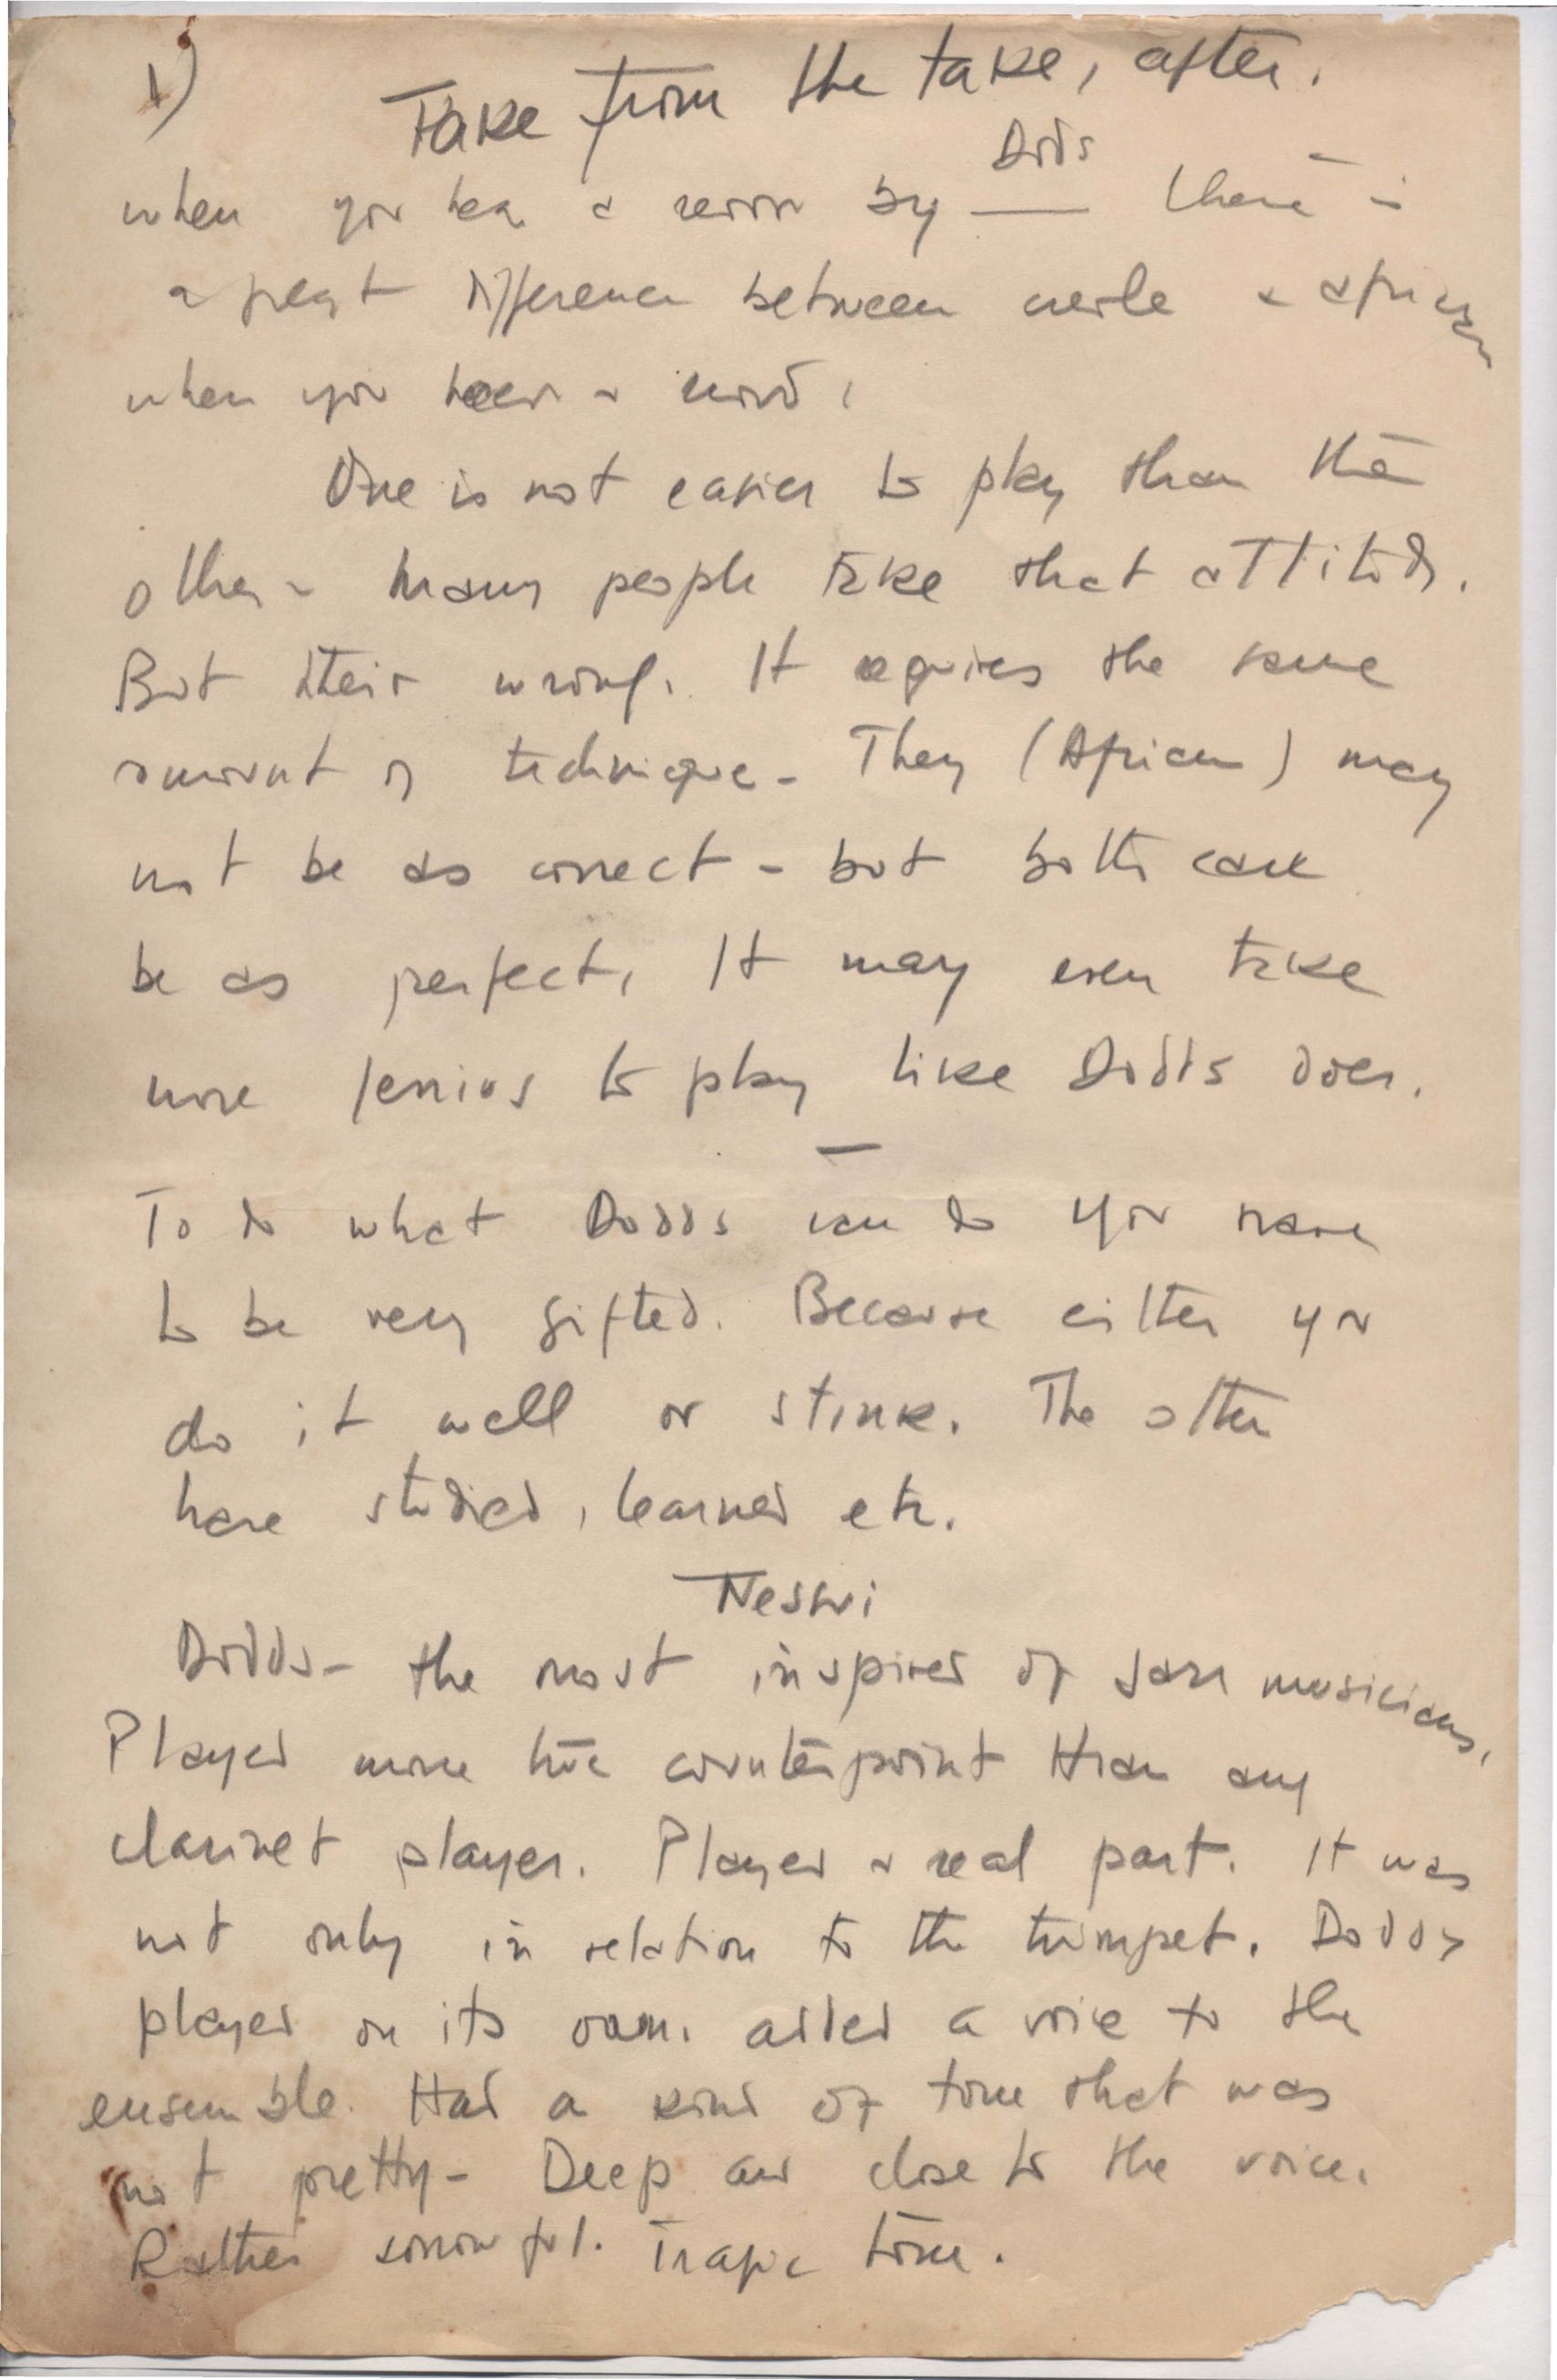 1)
Take from the take, after.
Dods
when you hea a recor by — there is
a great difference between creole & african
when you hear a record.
One is not easier to play than the
other - many people take that attitude.
But their wrong. It requires the same
amount of technique - They (African) may
not be as correct - but both can
be as perfect. It may even take
more genius to play like Dodds does.
—
To do what Dodds can do you have
to be very gifted. Because either you
do it well or stink. The other
have studied, learned etc.
Nesuhi
Dodds - the most inspired of jazz musicians.
Played more true counterpoint than any
clarinet player. Played a real part. It was
not only in relation to the trumpet. Dodds
played on its own. added a voice to the
ensemble. Had a kind of tone that was
not pretty - Deep and close to the voice.
Rather sorrowful. Tragic tone.